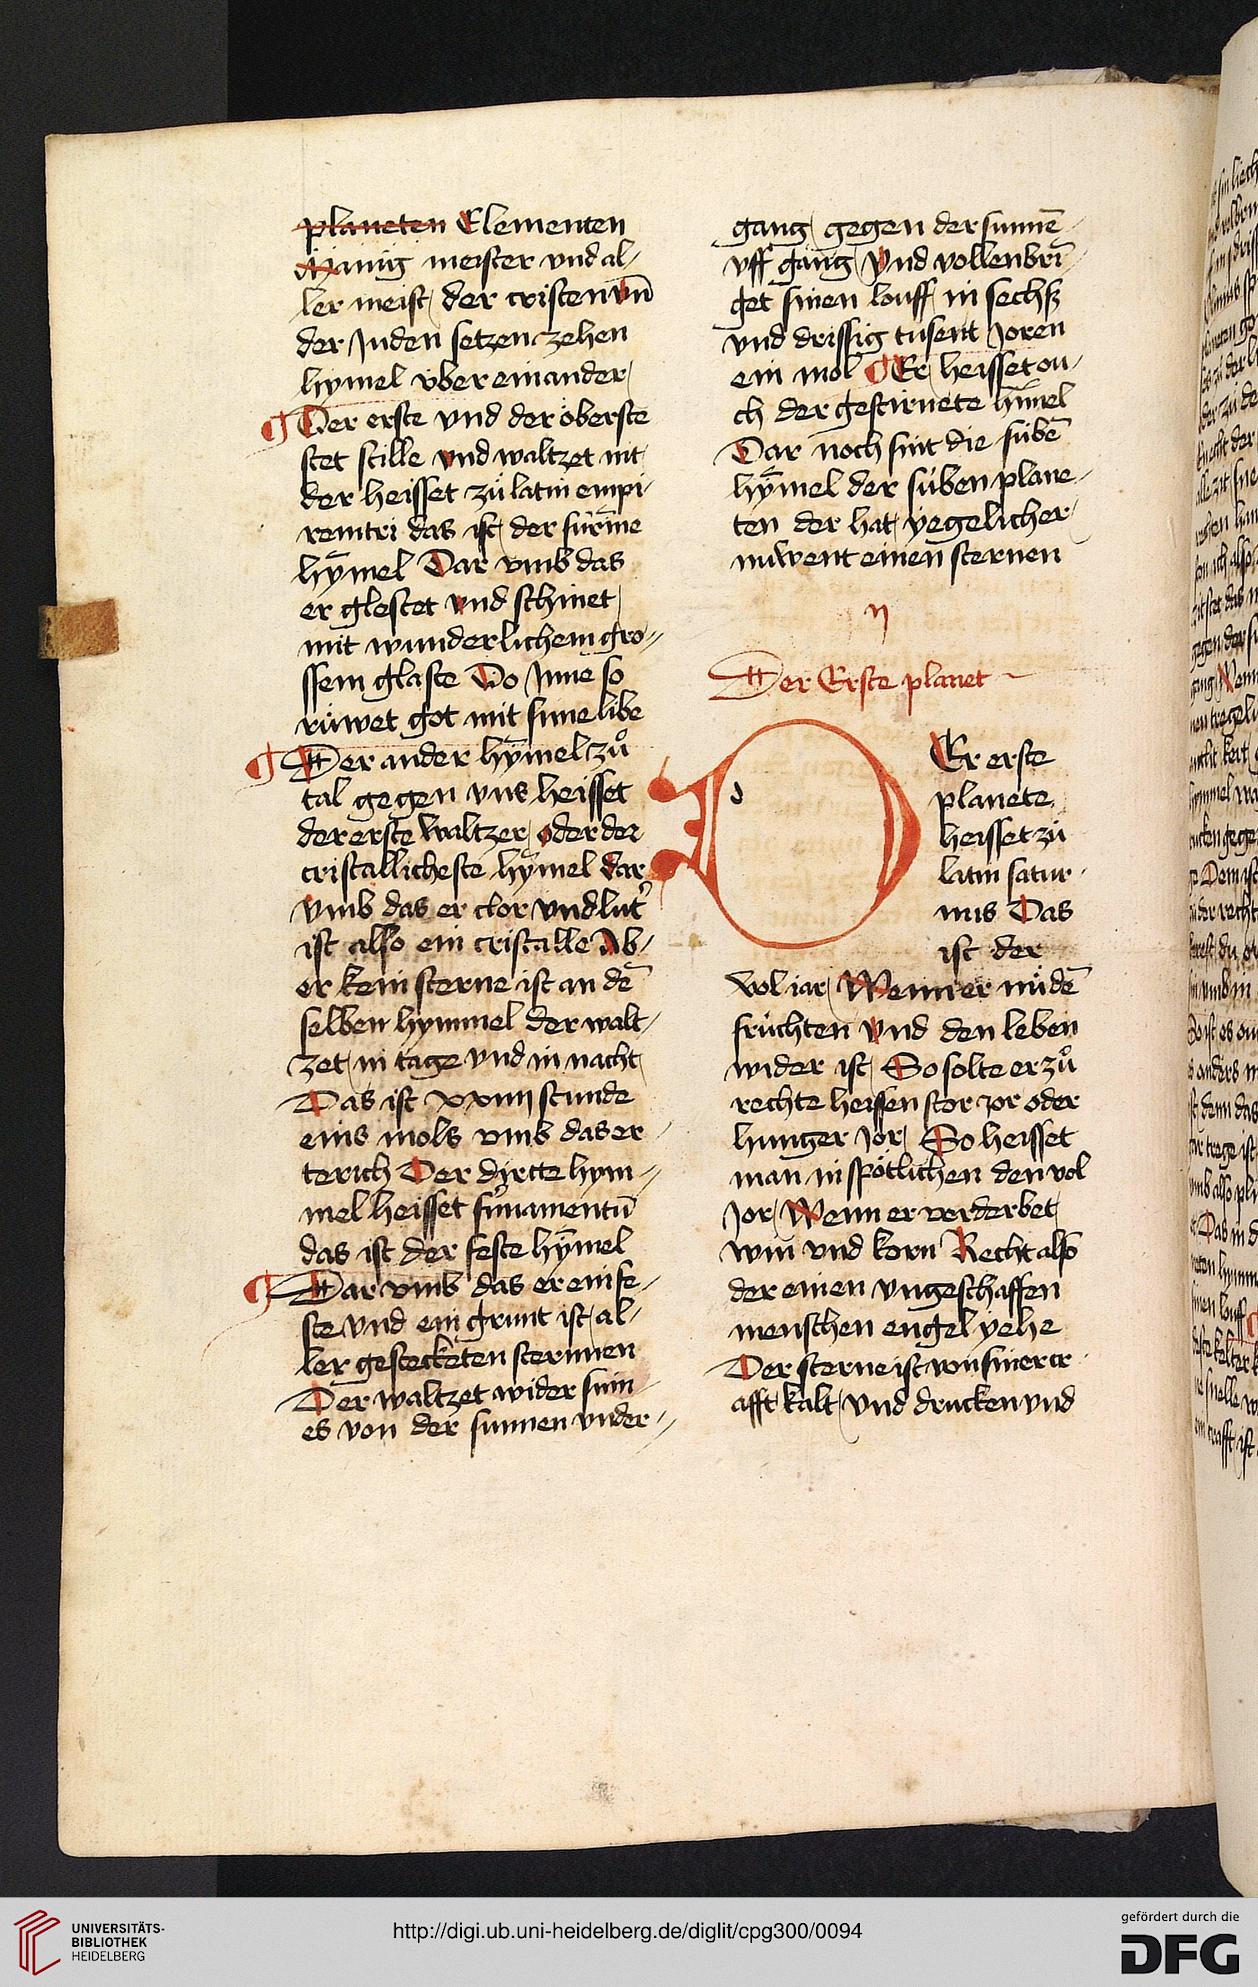 planeten Elementen
Manig meister vnd al-
ler meist der cristen vn̄
der Juden setzen zehen
hymel vber einander
Der erste vnd der oberste
stet stille vnd waltzet nit
der heisset zů latin empi-
das ist der
hȳmel Dar vmb das
er glestet vnd schinet
mit wunderlichem gro-
ssem glaste Do Jnne so
růwet got mit sime libe
Der ander hȳmel zů
tal gegen vns heisset
der erste waltzer oder der
cristallicheste hȳmel dar
vmb das er clor vnd lut'
ist also ein cristalle Ab-
er kein sterne ist an dē
selben hymmel der walt-
zet in tage vnd in nacht
Das ist xxiiij stunde
eins mols vmb das er-
terich Der dirte hym-
mel heisset firmamentū
das ist der feste hȳmel
Dar vmb das er ein fe-
ste vnd ein grunt ist al-
ler gesteckten sternnen
Der waltzet wider sinn-
es von der sunnen vnder-
gang gegen der sunnē-
vff gang vnd vollenbrī-
get sinen louff in sechß
vnd drissig tusent Joren
ein mol Er heisset ou-
ch der gestirnete hȳmel
Dar noch sint die sübē
hȳmel der süben plane-
ten der hat yegelicher
nuwent einen sternen
Der Erste planet
d
Er erste
planete
heisset zů
latin satur-
nus Das
ist der
vol iar Wenn er nů dē
früchten vnd den leben
wider ist So solte er zů
rechte heissen stor jor oder
hunger Jor So heisset
man in spötlichen den vol
Jor Wenn er verderbet
win vnd korn Recht also
der einen vngeschaffen
menschen engel yehe
Der sterne ist von siner cr-
afft kalt vnd drucken vnd
UNIVERSITÄTS-
BIBLIOTHEK
HEIDELBERG
http://digi.ub.uni-heidelberg.de/diglit/cpg300/0094
gefördert durch die
DFG